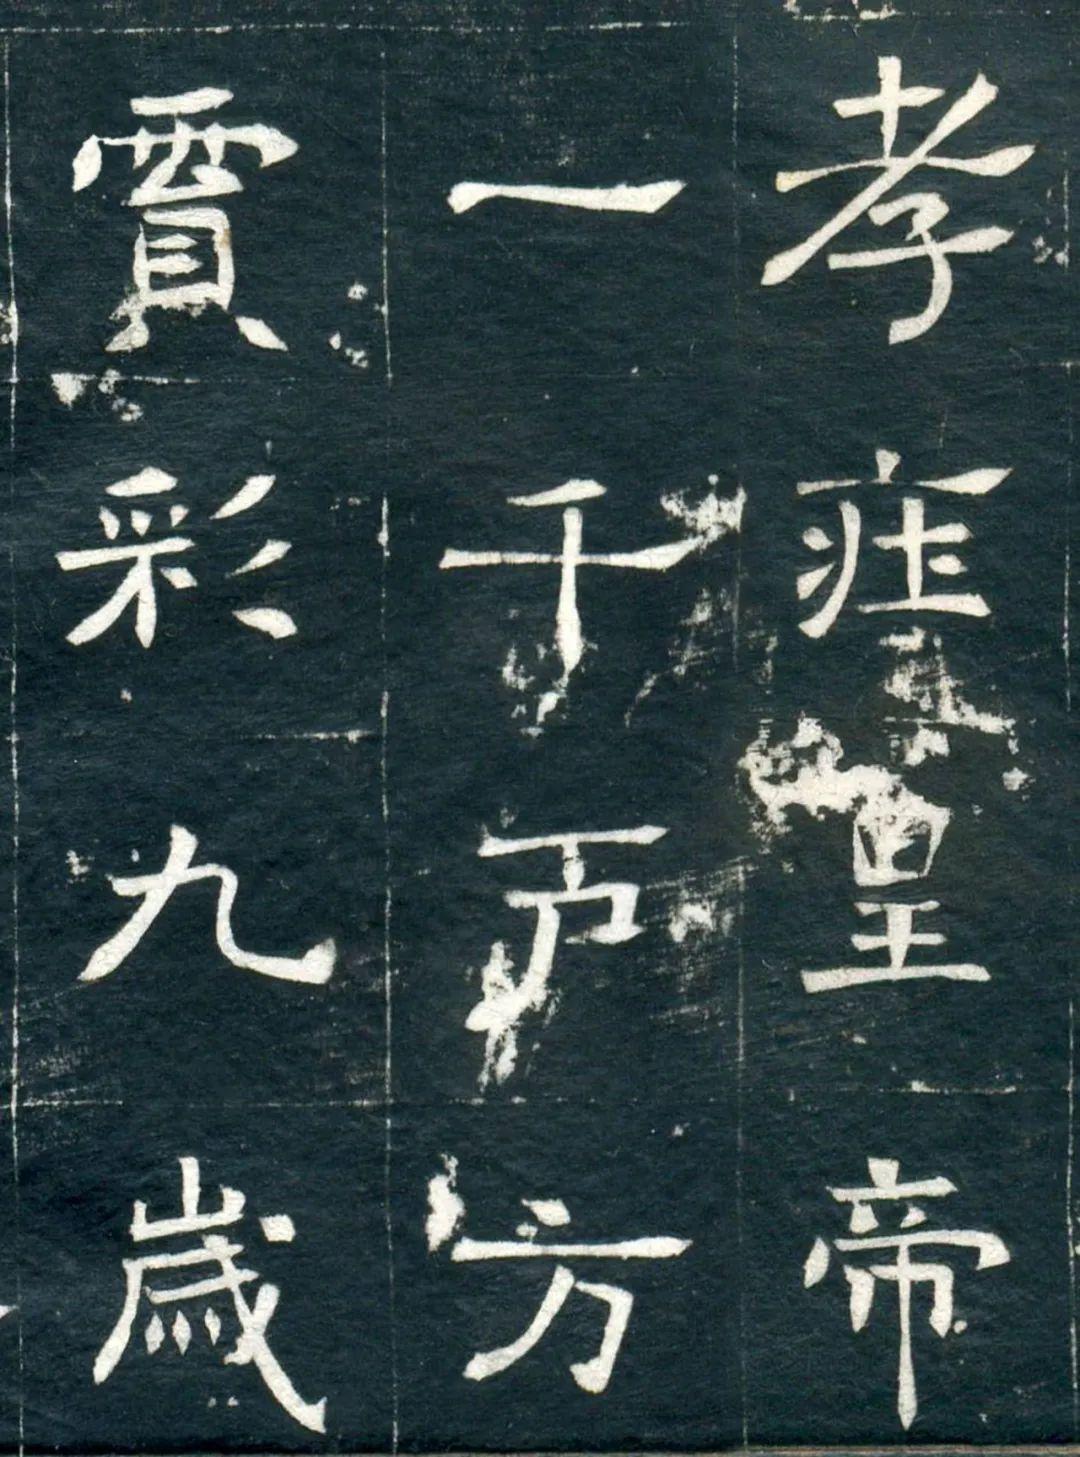 孝莊皇帝
一千戶方
賈彩九歲